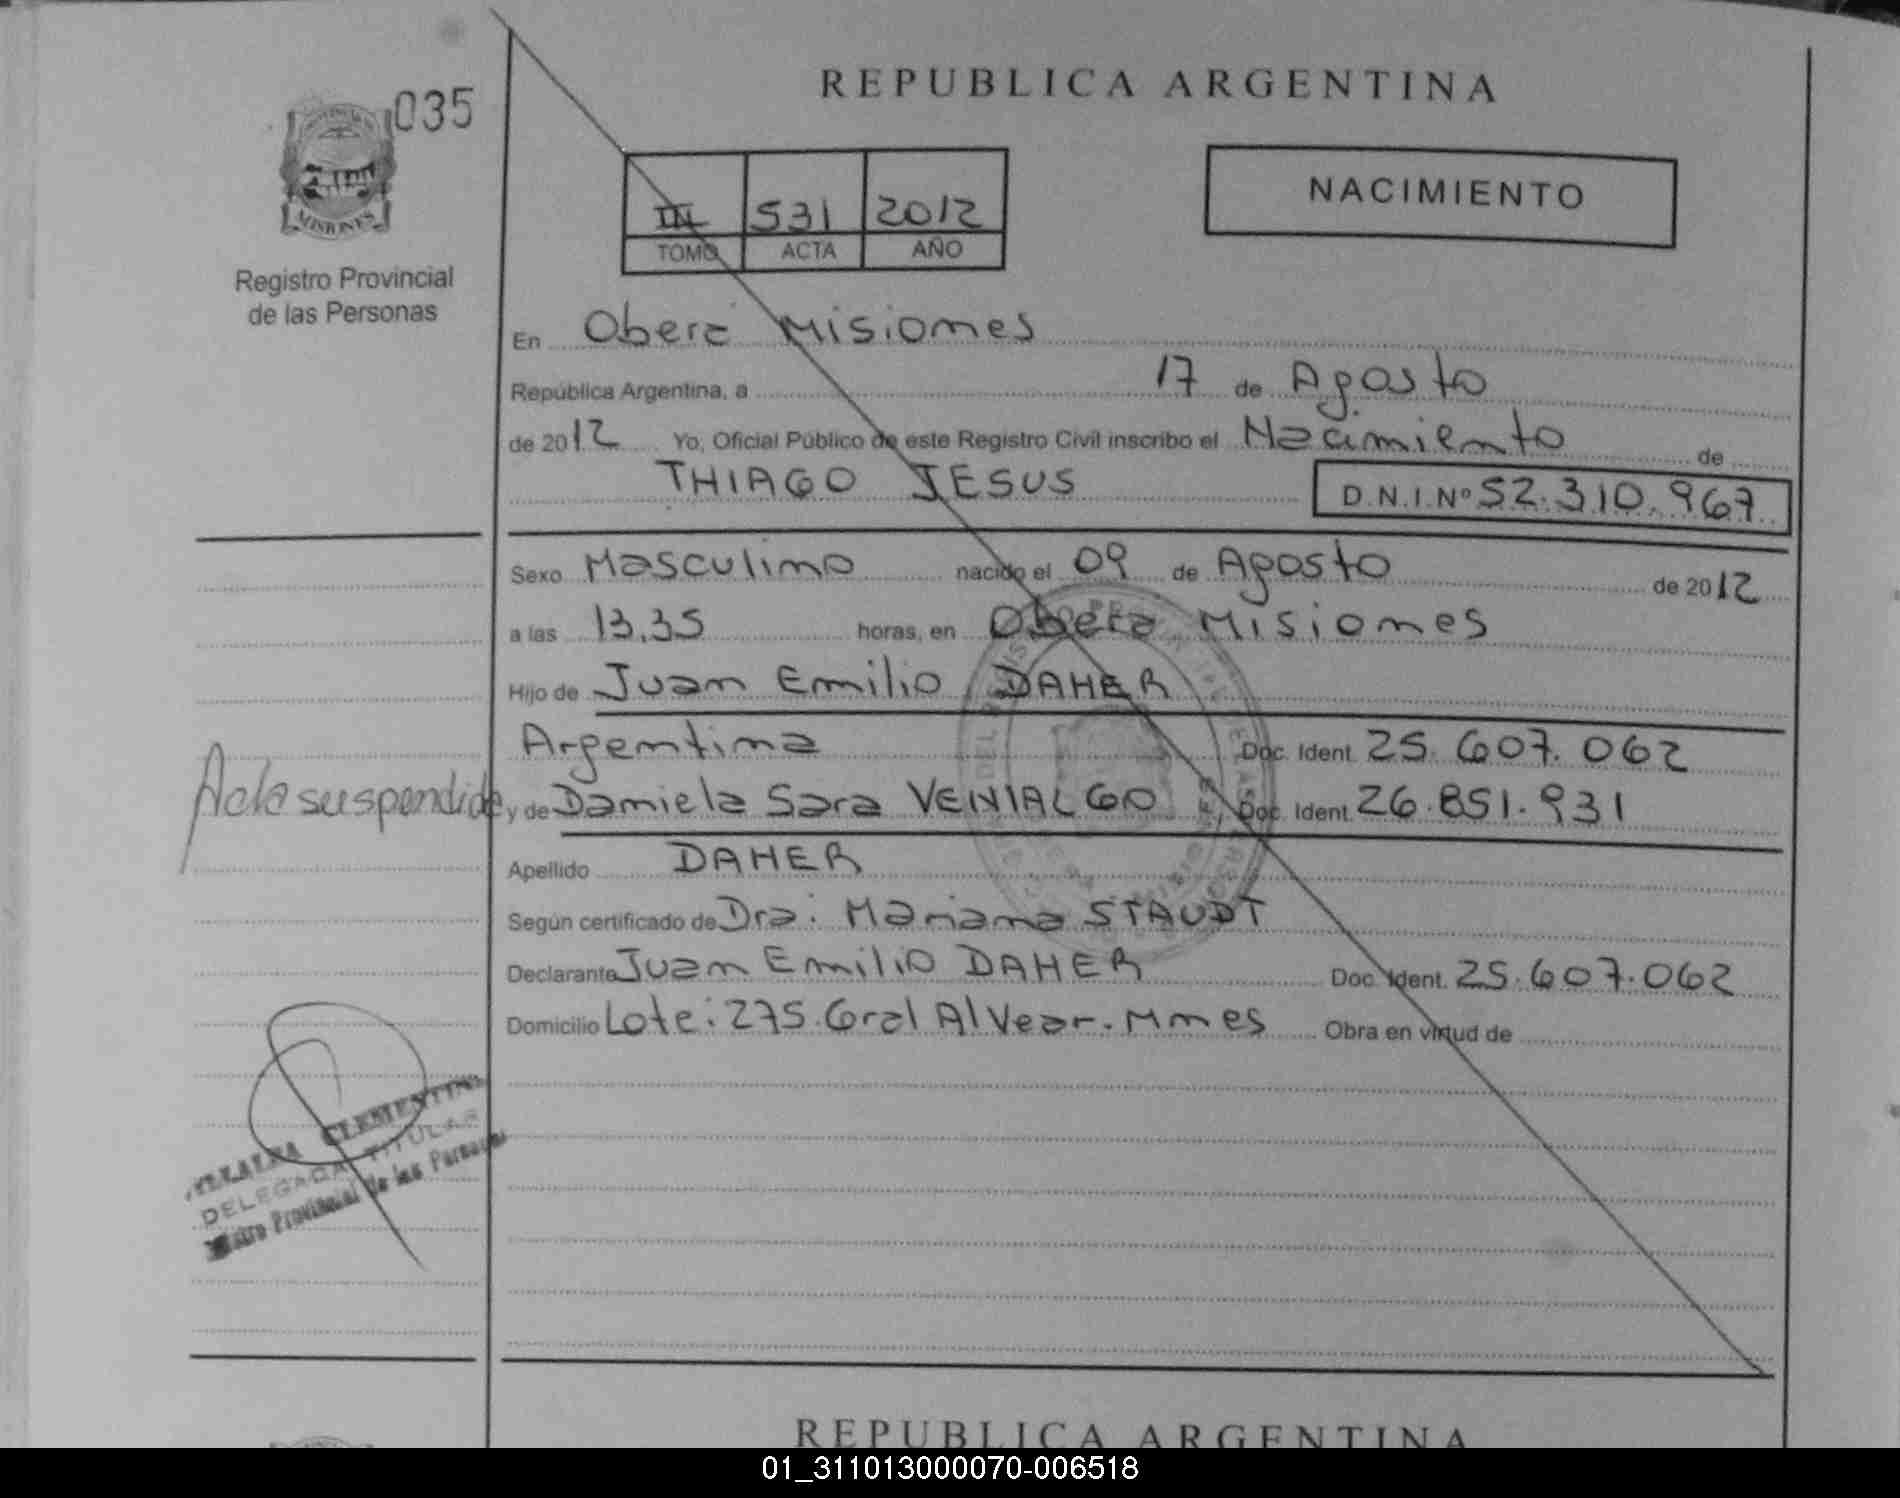 035
MISIONES
Registro Provincial
de las Personas
REPUBLICA ARGENTINA
III 531 2012
TOMO ACTA AÑO
NACIMIENTO
En Obera Misiones
República Argentina, a 17 de Agosto
de 2012 Yo, Oficial Público de este Registro Civil inscribo el Nacimiento de
THIAGO JESUS D.N.I. Nº 52.310.967
Sexo Masculino nacido el 09 de Agosto de 2012
a las 13,35 horas, en Obera Misiones
Hijo de Juan Emilio DAHER
Argentina Doc. Ident. 25.607.062
y de Daniela Sara VENIALGO, Doc. Ident. 26.851.931
Acta suspendida
Apellido DAHER
Según certificado de Dra: Mariana STAUDT
Declarante Juan Emilio DAHER Doc. Ident. 25.607.062
Domicilio Lote: 275. Gral Alvear. Mnes Obra en virtud de
CLEMENTINA
DELEGADA TITULAR
Provincial de las Personas
REPUBLICA ARGENTINA
01_311013000070-006518